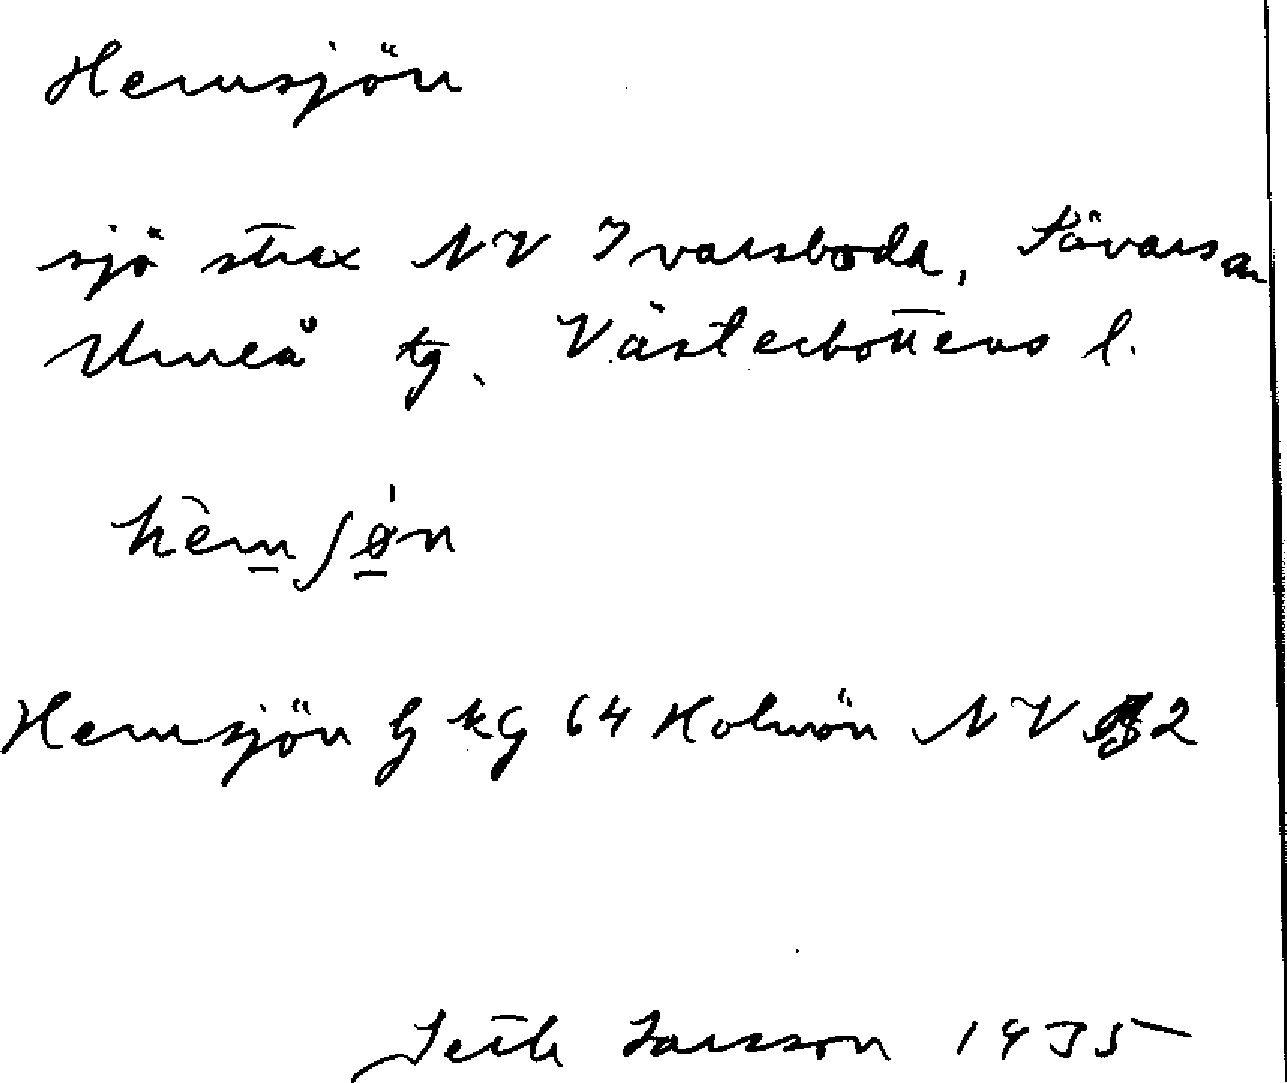 Hemsjön
sjö strax NV Ivarsboda, Sävars sn
Umeå tg. Västerbottens l.
hèmʃø̀n
Hemsjön G kg 64 Holmön NV 2
Seth Larsson 1935